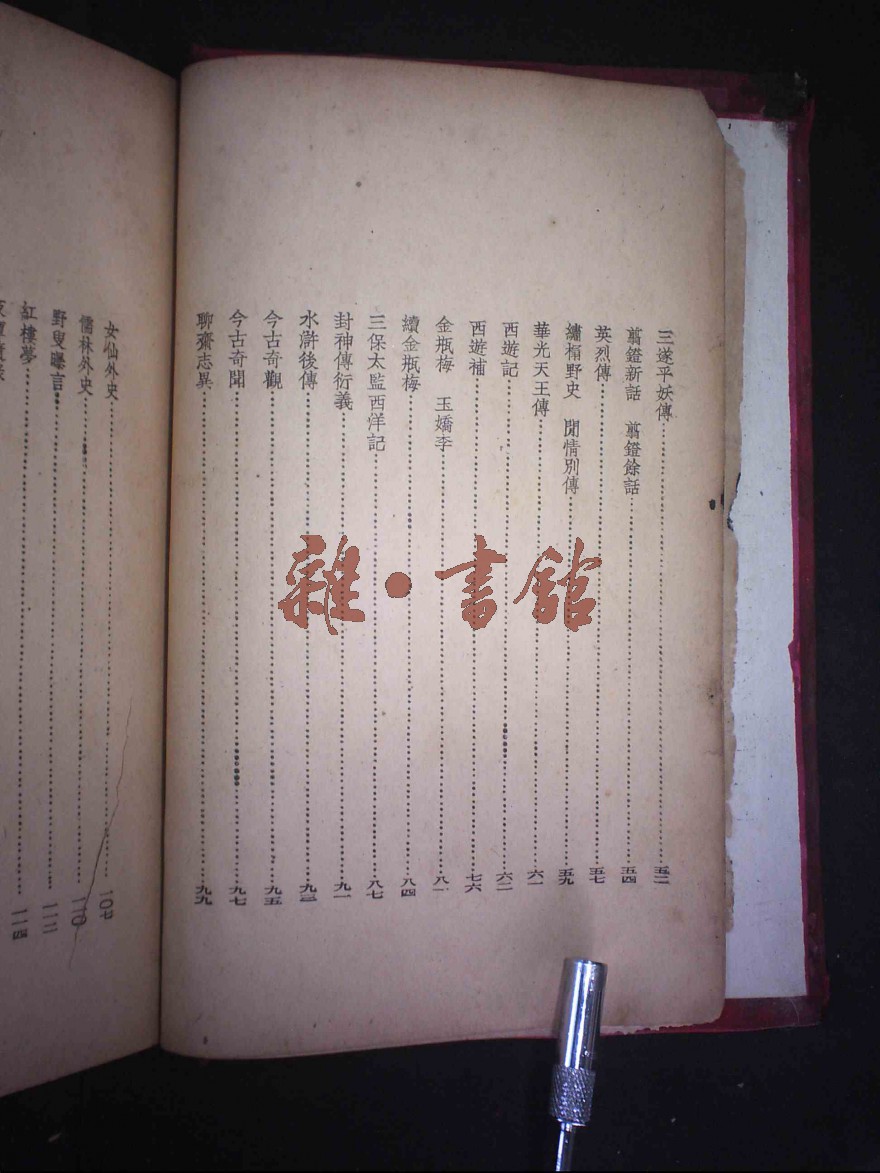 三遂平妖傳……五二
翦鐙新話　翦鐙餘話……五四
英烈傳……五七
繡榻野史　閒情別傳……五九
華光天王傳……六一
西遊記……六二
西遊補……七六
金瓶梅　玉嬌李……八一
續金瓶梅……八四
三保太監西洋記……八七
封神傳衍義……九一
水滸後傳……九三
今古奇觀……九五
今古奇聞……九七
聊齋志異……九九
女仙外史……
儒林外史……一一0
野叟曝言……一一二
紅樓夢……一一四
雜·書館